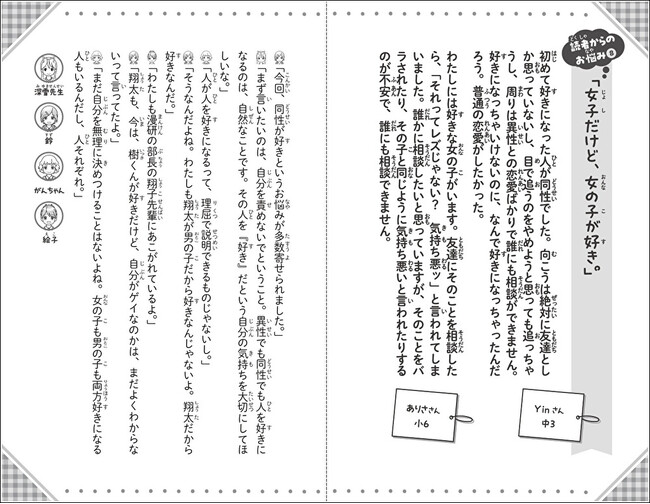 読者からのお悩み⑧
「女子だけど、女の子が好き。」
初めて好きになった人が同性でした。向こうは絶対に友達とし
か思っていないし、目で追うのをやめようと思っても追っちゃ
うし、周りは異性との恋愛ばかりで誰にも相談ができません。
好きになっちゃいけないのに、なんで好きになっちゃったんだ
ろう。普通の恋愛がしたかった。
Yinさん
中3
わたしには好きな女の子がいます。友達にそのことを相談した
ら、「それってレズじゃない？　気持ち悪ッ」と言われてしま
いました。誰かに相談したいと思っていますが、そのことをバ
ラされたり、その子と同じように気持ち悪いと言われたりする
のが不安で、誰にも相談できません。
ありささん
小6
「今回、同性が好きというお悩みが多数寄せられました。」
「まず言いたいのは、自分を責めないでということ。異性でも同性でも人を好きに
なるのは、自然なことです。その人を『好き』だという自分の気持ちを大切にしてほ
しいな。」
「人が人を好きになるって、理屈で説明できるものじゃないし。」
「そうなんだよね。わたしも翔太が男の子だから好きなんじゃないよ。翔太だから
好きなんだ。」
「わたしも漫研の部長の翔子先輩にあこがれているよ。」
「翔太も、今は、樹くんが好きだけど、自分がゲイなのかは、まだよくわからな
いって言ってたよ。」
「まだ自分を無理に決めつけることはないよね。女の子も男の子も両方好きになる
人もいるんだし、人それぞれ。」
深雪先生
鈴
がんちゃん
絵子